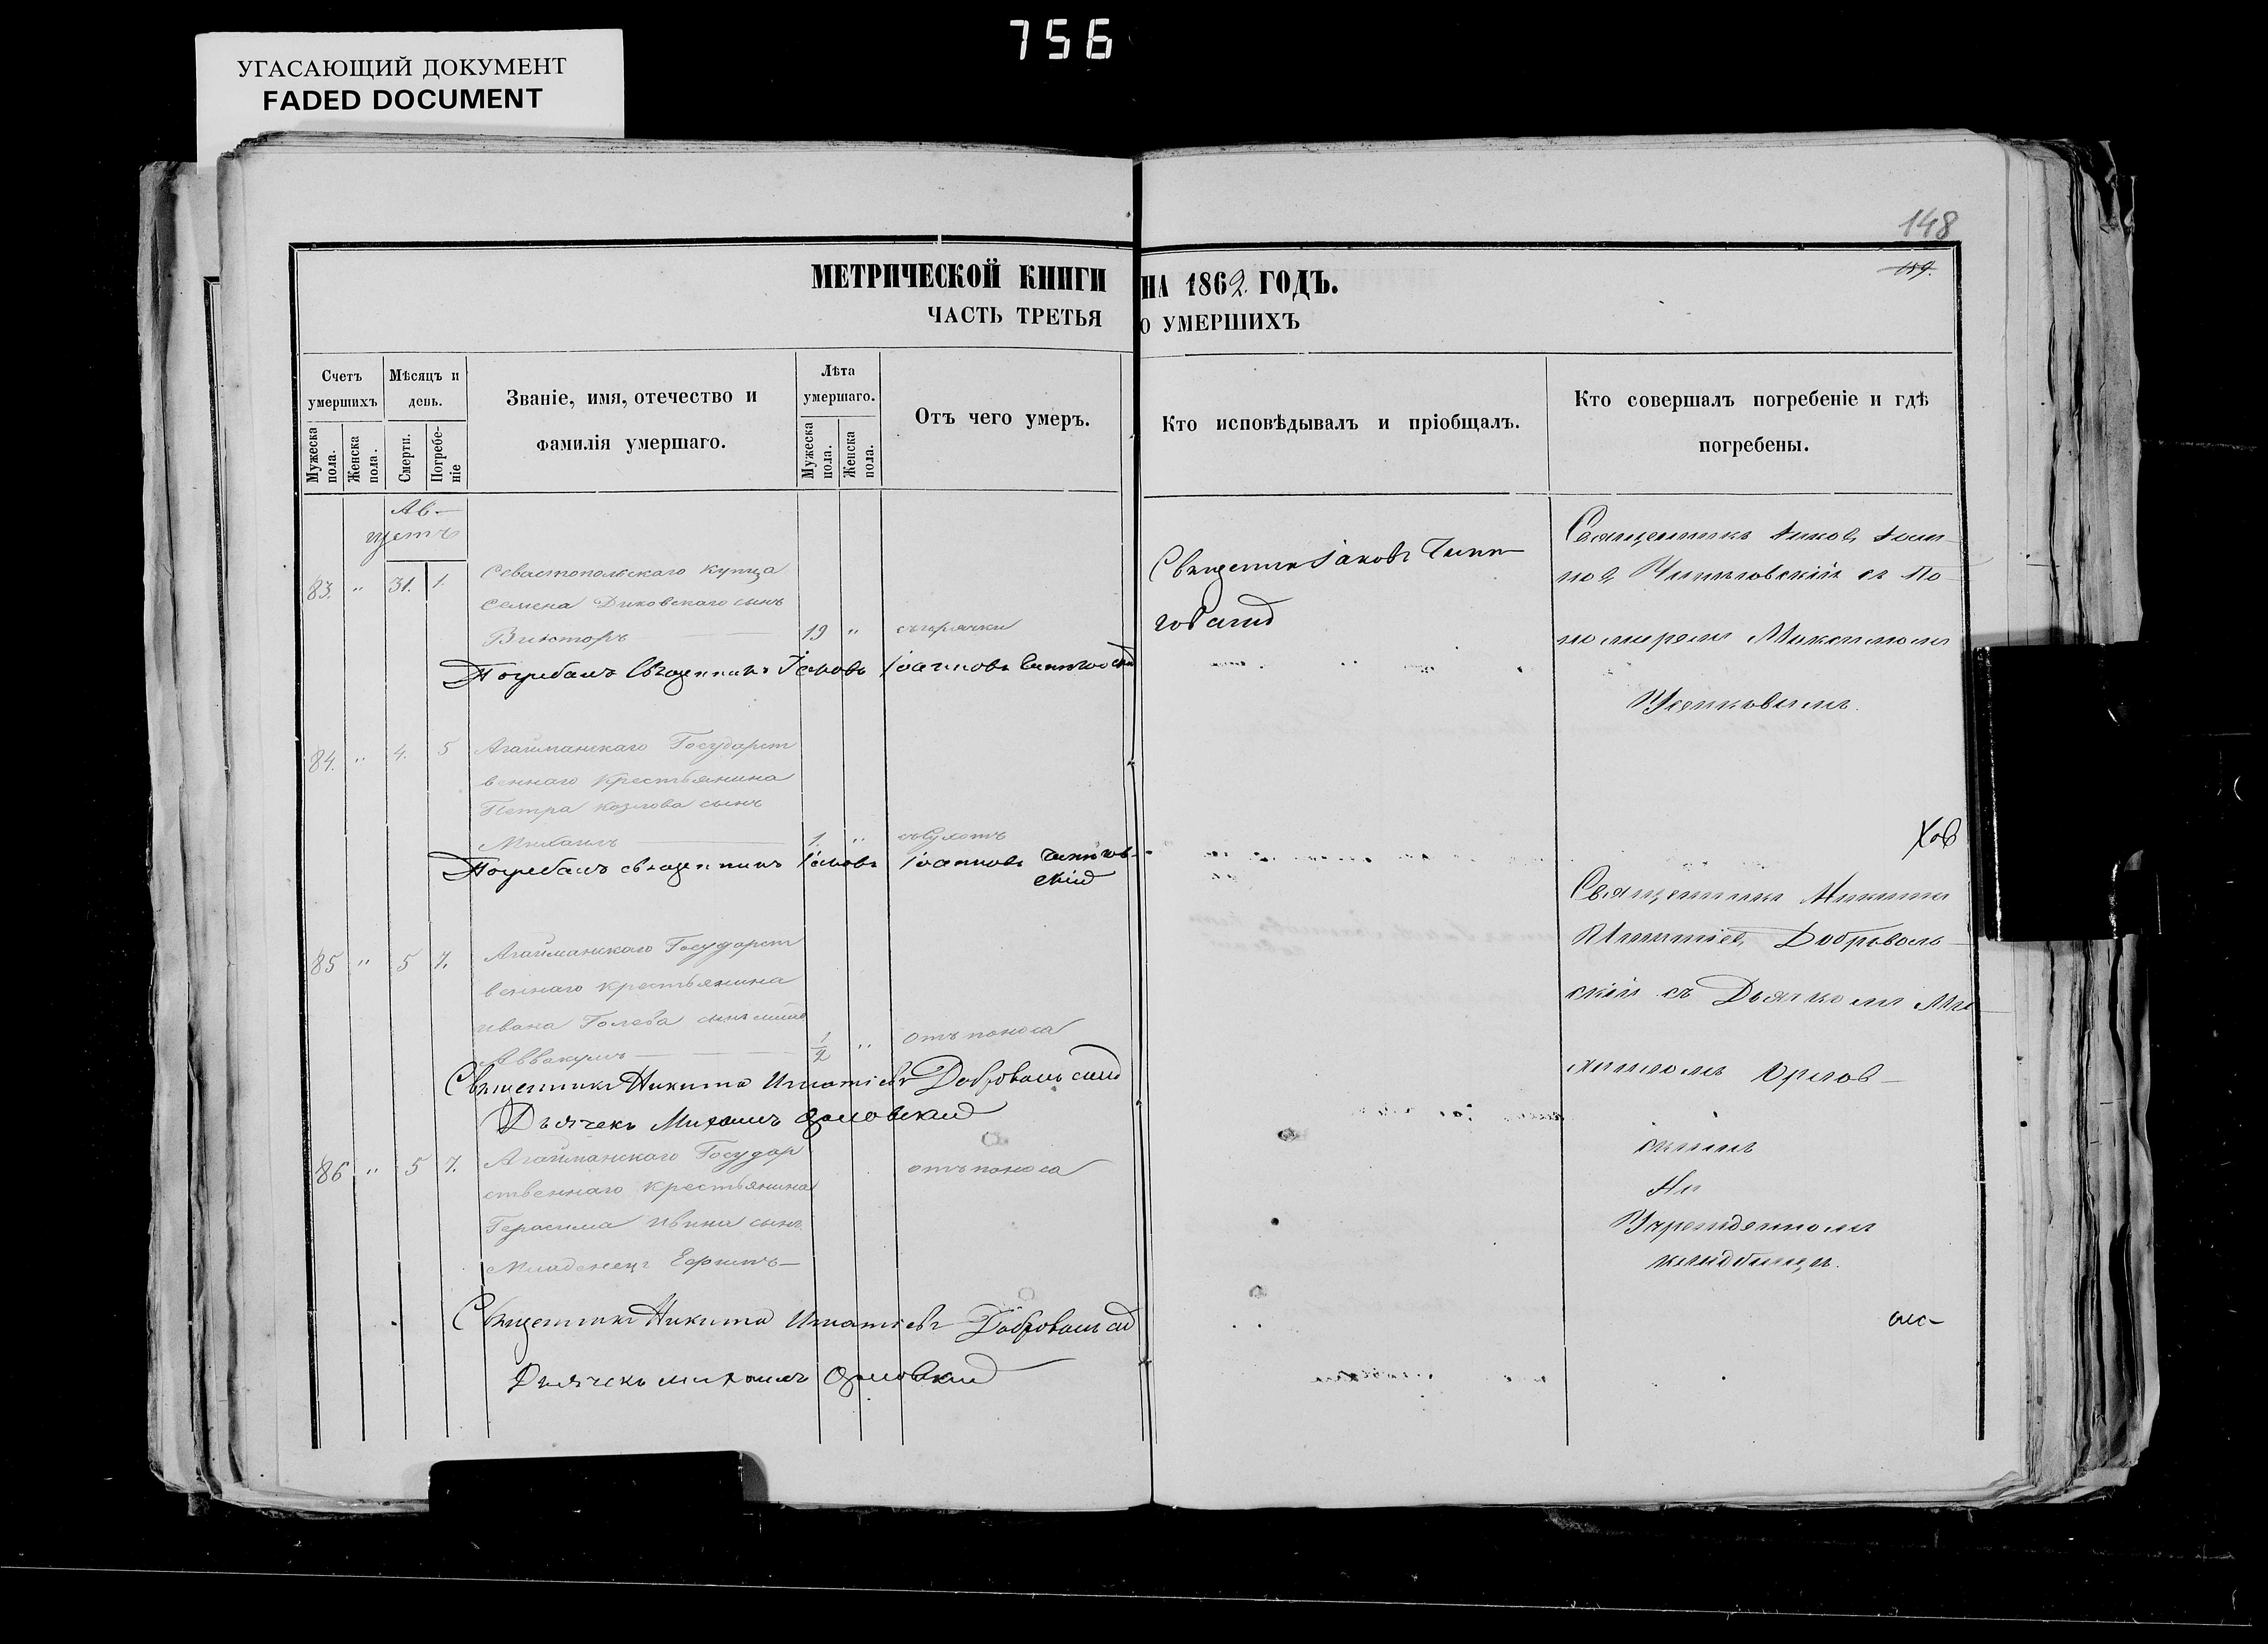 756
УГАСАЮЩИЙ ДОКУМЕНТ
FADED DOCUMENT
148
159.
МЕТРИЧЕСКОЙ КНИГИ НА 1862 ГОДЪ.
ЧАСТЬ ТРЕТЬЯ О УМЕРШИХЪ
Счетъ умершихъ
Мужеска пола.
Женска пола.
Мѣсяцъ и день.
Смерти.
Погребеніе
Званіе, имя, отечество и фамилія умершаго.
Лѣта умершаго.
Мужеска пола.
Женска пола.
Отъ чего умеръ.
Кто исповѣдывалъ и пріобщалъ.
Кто совершалъ погребеніе и гдѣ погребены.
Ав-
густъ
83. " 31. 1.
Севастопольскаго купца
Семена Диковскаго сынъ
Викторъ 19 " отъ горячки
Погребалъ Священникъ Іаковъ Іоанновъ
Священникъ Іаковъ
Священникъ Іаков Іоан-
нов съ По-
номаремъ Максимомъ
84. " 4. 5
Агайманскаго Государст
веннаго крестьянина
Петра Козлова сынъ
Михаилъ 1. "
Погребалъ священникъ Іаковъ Іоанновъ
85 " 5 7.
Агайманскаго Государст
веннаго крестьянина
Ивана Голева сынъ
Аввакумъ 1/2 " отъ поноса
Священникъ Никита Игнатіевъ Добровольскій
Дьячекъ Михаилъ Орловскій
Священникъ Никита
Игнатіев Доброволь-
скій съ Дьячкомъ Ми
хаиломъ Орлов-
скимъ
На
Учрежденномъ
кладбищѣ.
86 " 5 7.
Агайманскаго Государ
ственнаго крестьянина
Герасима Ивина сынъ
Младенецъ Ефимъ
отъ поноса
Священникъ Никита Игнатіевъ Добровольскій
Дьячекъ Михаилъ Орловскій